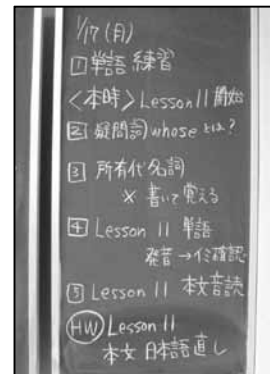 1/17(月)
1 単語 練習
<本時> Lesson 11 開始
2 疑問詞 whose とは?
3 所有代名詞
× 書いて覚える
4 Lesson 11 単語
発音→イミ確認
5 Lesson 11 本文音読
HW Lesson 11
本文 日本語直し